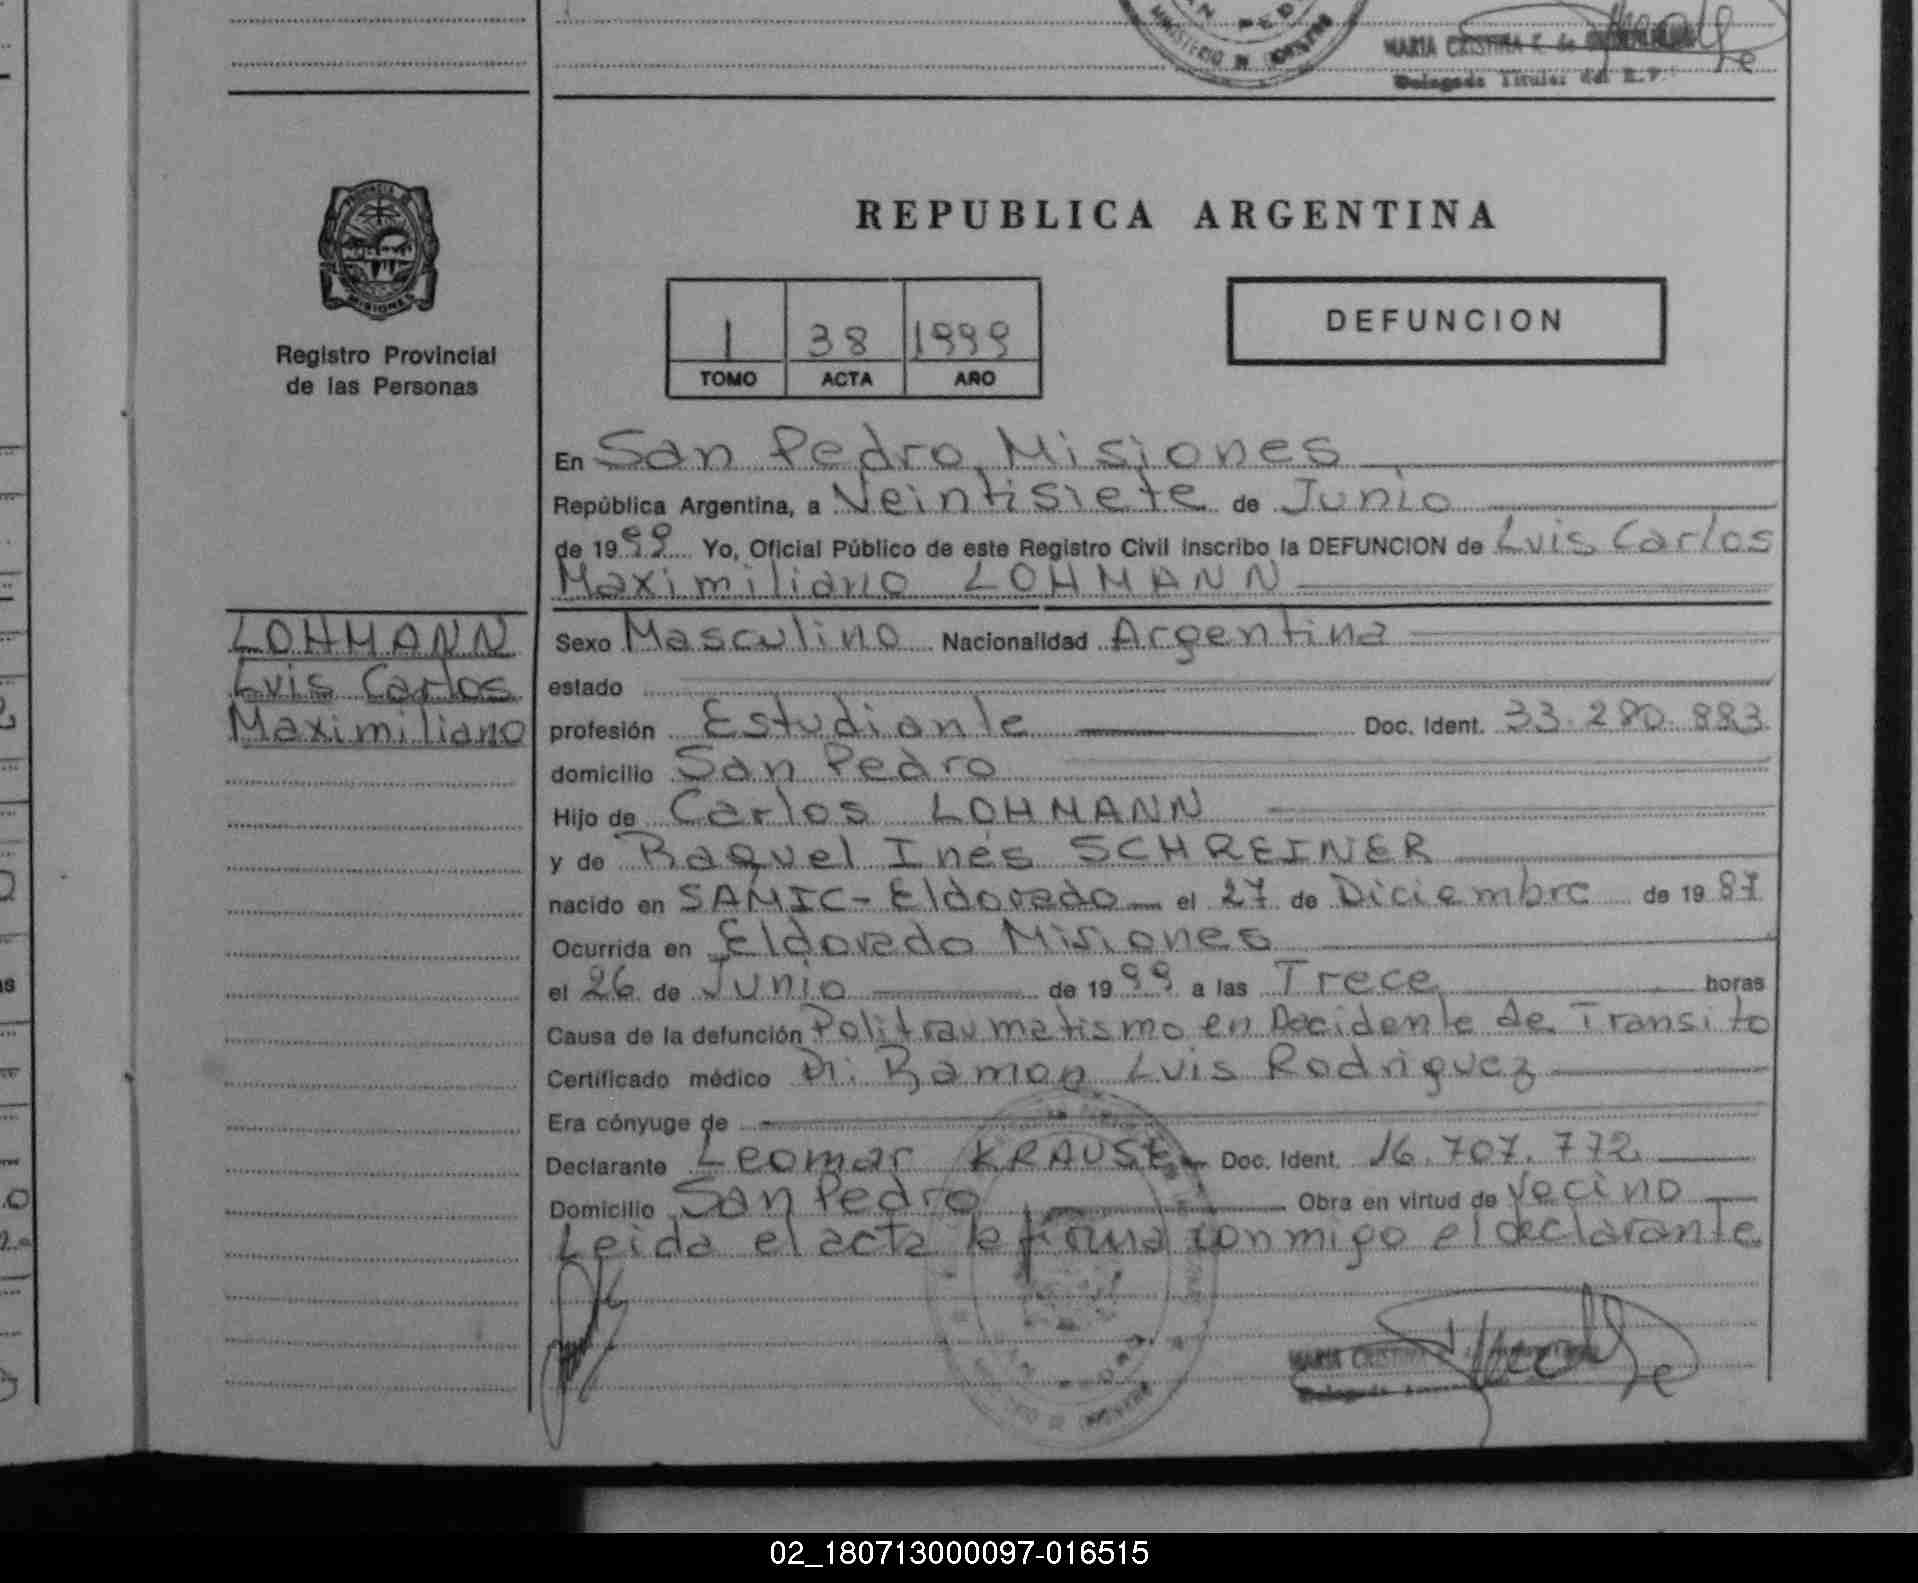 MARIA CRISTINA
Delegada Titular del R.P.
PROVINCIA DE
MISIONES
Registro Provincial
de las Personas
REPUBLICA ARGENTINA
1 38 1999
TOMO ACTA AÑO
DEFUNCION
En San Pedro, Misiones
República Argentina, a Veintisiete de Junio
de 1999 Yo, Oficial Público de este Registro Civil inscribo la DEFUNCION de Luis Carlos
Maximiliano LOHMANN
LOHMANN
Luis Carlos
Maximiliano
Sexo Masculino Nacionalidad Argentina
estado
profesión Estudiante Doc. Ident. 33.280.883
domicilio San Pedro
Hijo de Carlos LOHMANN
y de Raquel Inés SCHREINER
nacido en SAMIC - Eldorado el 27 de Diciembre de 1987
Ocurrida en Eldorado Misiones
el 26 de Junio de 1999 a las Trece horas
Causa de la defunción Politraumatismo en Accidente de Transito
Certificado médico Dr: Ramon Luis Rodriguez
Era cónyuge de
Declarante Leomar KRAUSE Doc. Ident. 16.707.772
Domicilio San Pedro Obra en virtud de Vecino
Leida el acta la firma conmigo el declarante
MARIA CRISTINA
Delegada
02_180713000097-016515